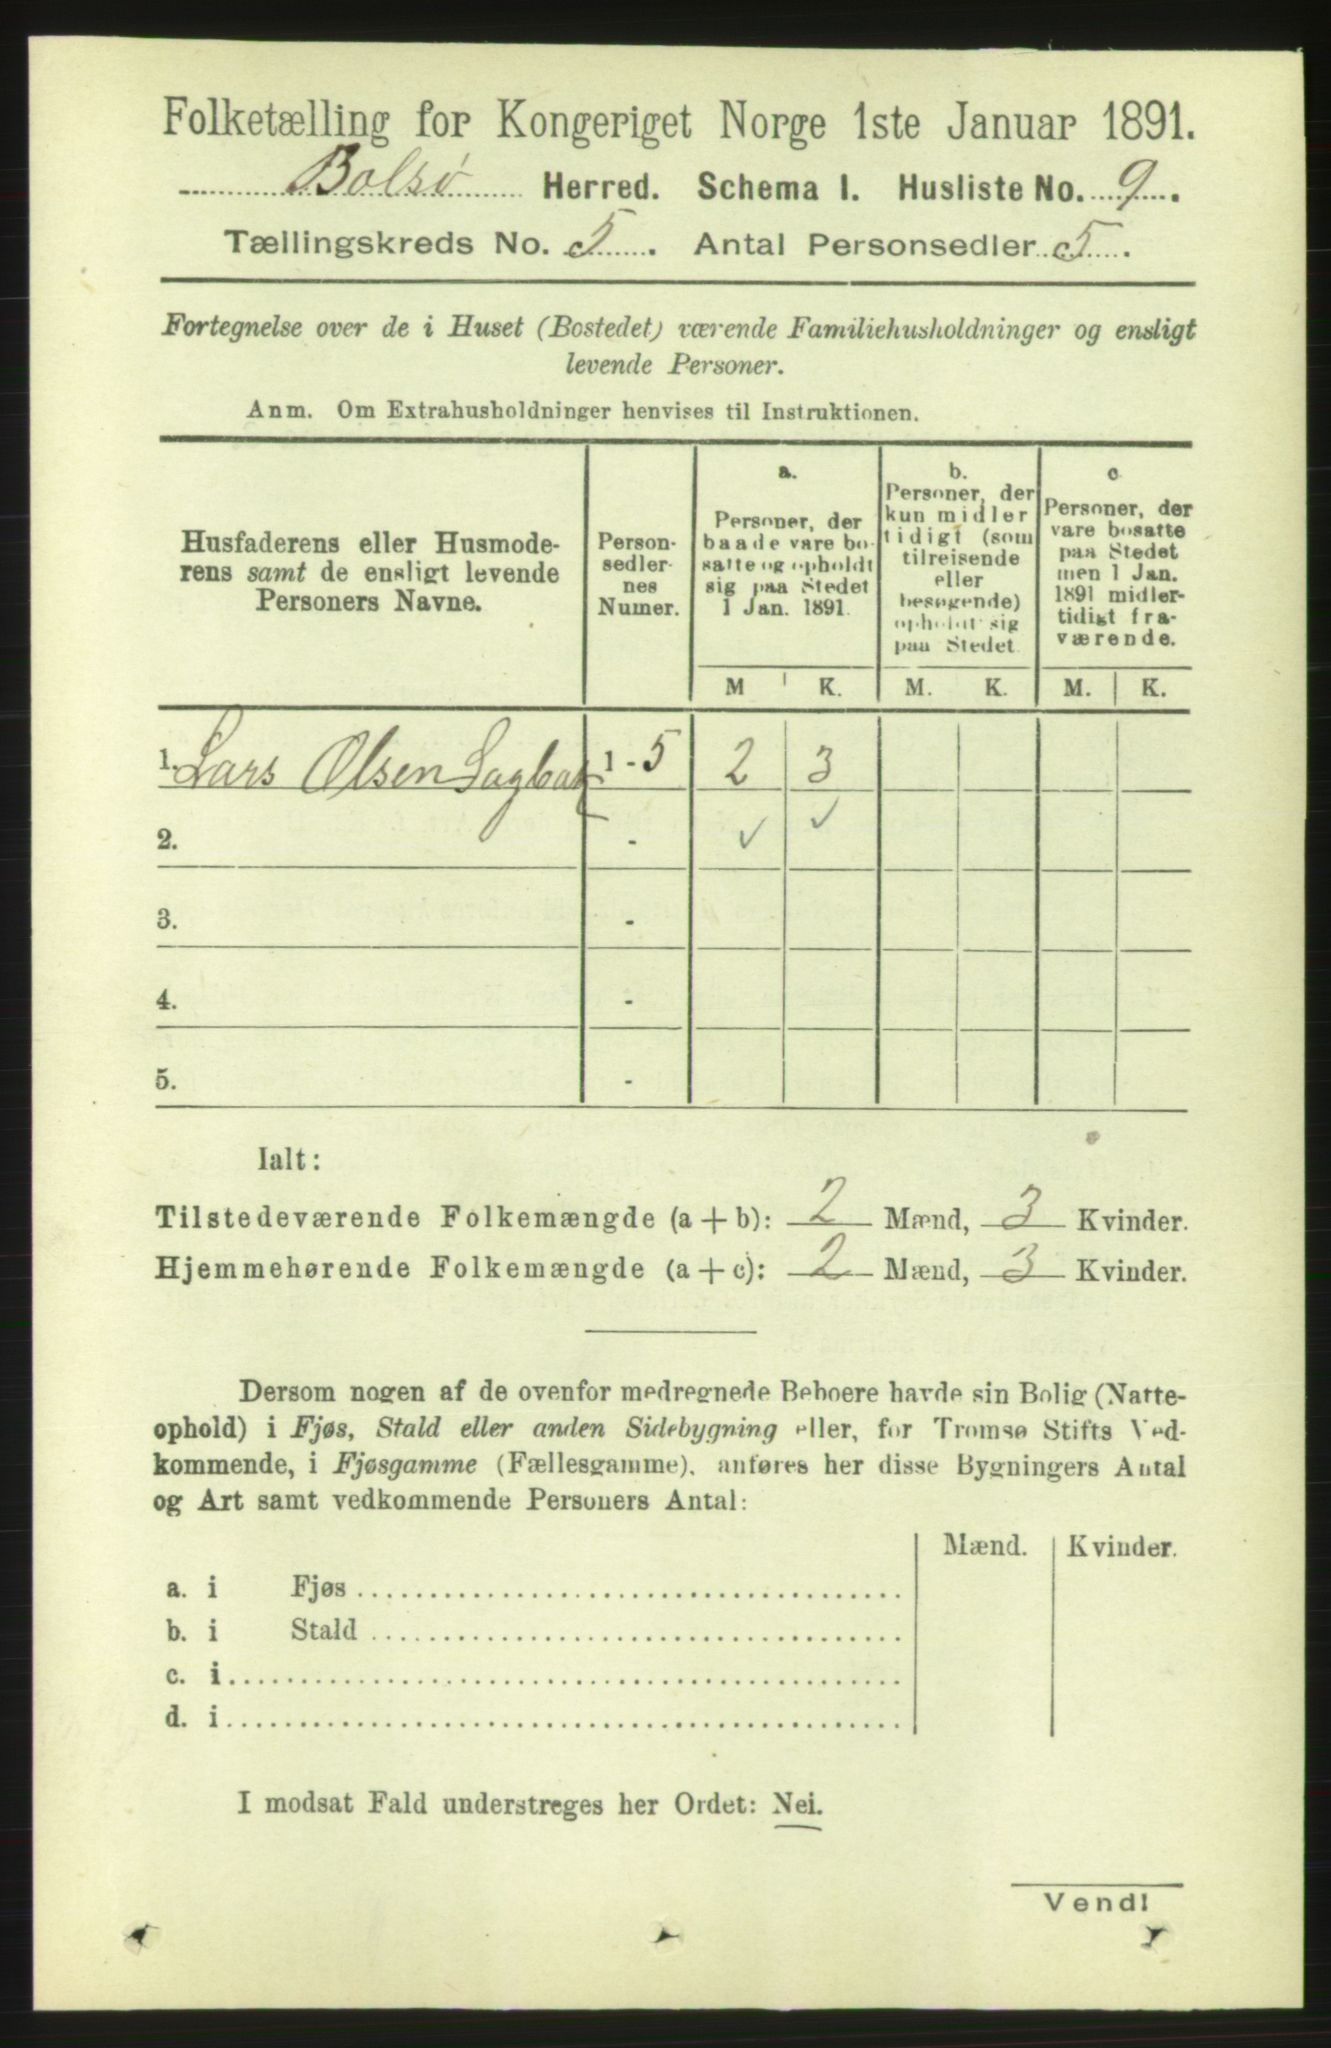 Folketælling for Kongeriget Norge 1ste Januar 1891.
Bolsø Herred. Schema I. Husliste No. 9.
Tællingskreds No. 5. Antal Personsedler 5.
Fortegnelse over de i Huset (Bostedet) værende Familiehusholdninger og ensligt
levende Personer.
Anm. Om Extrahusholdninger henvises til Instruktionen.
Husfaderens eller Husmode-
rens samt de ensligt levende
Personers Navne.
Person-
sedler-
nes
Numer.
a.
Personer, der
baade vare bo-
satte og opholdt
sig paa Stedet
1 Jan. 1891.
b.
Personer, der
kun midler
tidigt (som
tilreisende
eller
besøgende)
opholdt sig
paa Stedet.
c
Personer, der
vare bosatte
paa Stedet
men 1 Jan.
1891 midler-
tidigt fra-
værende.
M K. M. K. M. K.
1. Lars Olsen 1-5 2 3
2. - ✓ ✓
3. -
4. -
5. -
Ialt:
Tilstedeværende Folkemængde (a + b): 2 Mænd, 3 Kvinder.
Hjemmehørende Folkemængde (a + c): 2 Mænd, 3 Kvinder.
Dersom nogen af de ovenfor medregnede Beboere havde sin Bolig (Natte-
ophold) i Fjøs, Stald eller anden Sidebygning eller, for Tromsø Stifts Ved-
kommende, i Fjøsgamme (Fællesgamme), anføres her disse Bygningers Antal
og Art samt vedkommende Personers Antal:
Mænd. Kvinder.
a. i Fjøs
b. i Stald
c. i
d. i
I modsat Fald understreges her Ordet: Nei.
Vend!